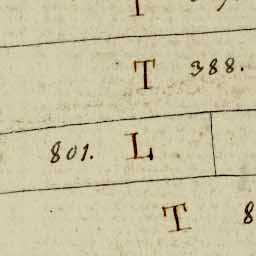 T
T 388.
801. L
T 8